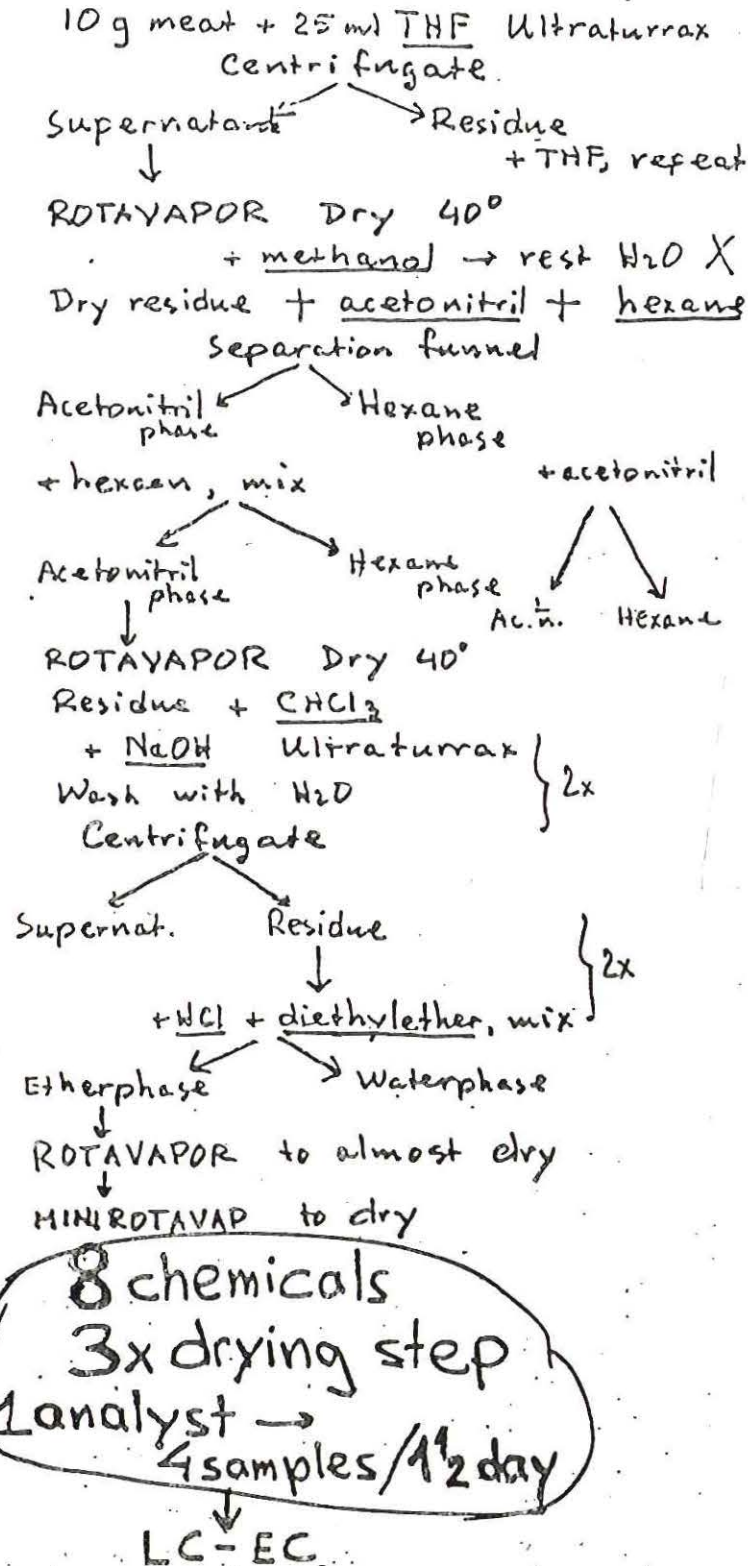 10 g meat + 25 ml THF Ultraturrax
Centrifugate.
Supernatant Residue
+ THF, repeat
ROTAVAPOR Dry 40°
+ methanol → rest H2O X
Dry residue + acetonitril + hexane
Separation funnel
Acetonitril phase Hexane phase
+ hexaan, mix + acetonitril
Acetonitril phase Hexane phase
Ac.n. Hexane
ROTAVAPOR Dry 40°
Residue + CHCl3
+ NaOH Ultraturrax
Wash with H2O } 2x
Centrifugate
Supernat. Residue
} 2x
+ HCl + diethylether, mix
Etherphase Waterphase
ROTAVAPOR to almost dry
MINIROTAVAP to dry
8 chemicals
3x drying step
1 analyst →
4 samples/1 1/2 day
LC-EC